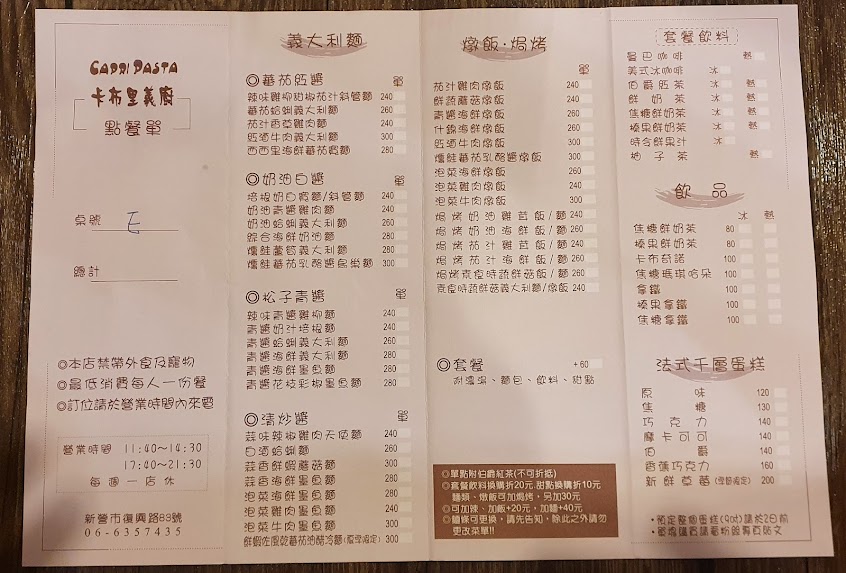 CAPPI PASTA
卡布里義廚
點餐單
桌號 E
總計
◎本店禁帶外食及寵物
◎最低消費每人一份餐
◎訂位請於營業時間內來電
營業時間 11:40~14:30
17:40~21:30
每週一店休
新營市復興路83號
06-6357435
義大利麵
◎蕃茄紅醬 單
辣味雞柳甜椒茄汁斜管麵 240
蕃茄蛤蜊義大利麵 260
茄汁香草雞肉麵 240
紅酒牛肉義大利麵 300
西西里海鮮蕃茄寬麵 280
◎奶油白醬 單
培根奶白寬麵/斜管麵 240
奶油青醬雞肉麵 240
奶油蛤蜊義大利麵 260
綜合海鮮奶油麵 280
燻鮭蘆筍義大利麵 280
燻鮭蕃茄乳酪醬鳥巢麵 300
◎松子青醬 單
辣味青醬雞柳麵 240
青醬奶汁培根麵 240
青醬蛤蜊義大利麵 260
青醬海鮮義大利麵 280
青醬海鮮墨魚麵 280
青醬花枝彩椒墨魚麵 280
◎清炒醬 單
蒜味辣椒雞肉天使麵 240
白酒蛤蜊麵 260
蒜香鮮蝦蘑菇麵 300
蒜香海鮮墨魚麵 280
泡菜海鮮墨魚麵 280
泡菜雞肉墨魚麵 240
泡菜牛肉墨魚麵 300
鮮蝦佐風乾蕃茄油醋冷麵(夏季限定) 300
燉飯·焗烤
單
茄汁雞肉燉飯 240
鮮蔬蘑菇燉飯 240
青醬海鮮燉飯 260
什錦海鮮燉飯 260
紅酒牛肉燉飯 300
燻鮭蕃茄乳酪醬燉飯 300
泡菜海鮮燉飯 260
泡菜雞肉燉飯 240
泡菜牛肉燉飯 300
焗烤奶油雞茸飯/麵 240
焗烤奶油海鮮飯/麵 260
焗烤茄汁雞茸飯/麵 240
焗烤茄汁海鮮飯/麵 260
焗烤素食時蔬鮮菇飯/麵 260
素食時蔬鮮菇義大利麵/燉飯 240
◎套餐 +60
附濃湯、麵包、飲料、甜點
◎單點附伯爵紅茶(不可折抵)
◎套餐飲料換購折20元,甜點換購折10元
麵類、燉飯可加焗烤，另加30元
◎可加辣、加飯+20元、加麵+40元
◎麵條可更換，請先告知，除此之外請勿
更改菜單!!
套餐飲料
曼巴咖啡 熱
美式冰咖啡 冰
伯爵紅茶 冰 熱
鮮奶茶 冰 熱
焦糖鮮奶茶 冰 熱
榛果鮮奶茶 冰 熱
時令鮮果汁 冰
柚子茶 熱
飲品
冰 熱
焦糖鮮奶茶 80
榛果鮮奶茶 80
卡布奇諾 100
焦糖瑪琪哈朵 100
拿鐵 100
榛果拿鐵 100
焦糖拿鐵 100
法式千層蛋糕
原味 120
焦糖 130
巧克力 140
摩卡可可 140
伯爵 140
香蕉巧克力 160
新鮮草莓(季節限定) 200
•預定整個蛋糕(9吋)請於2日前